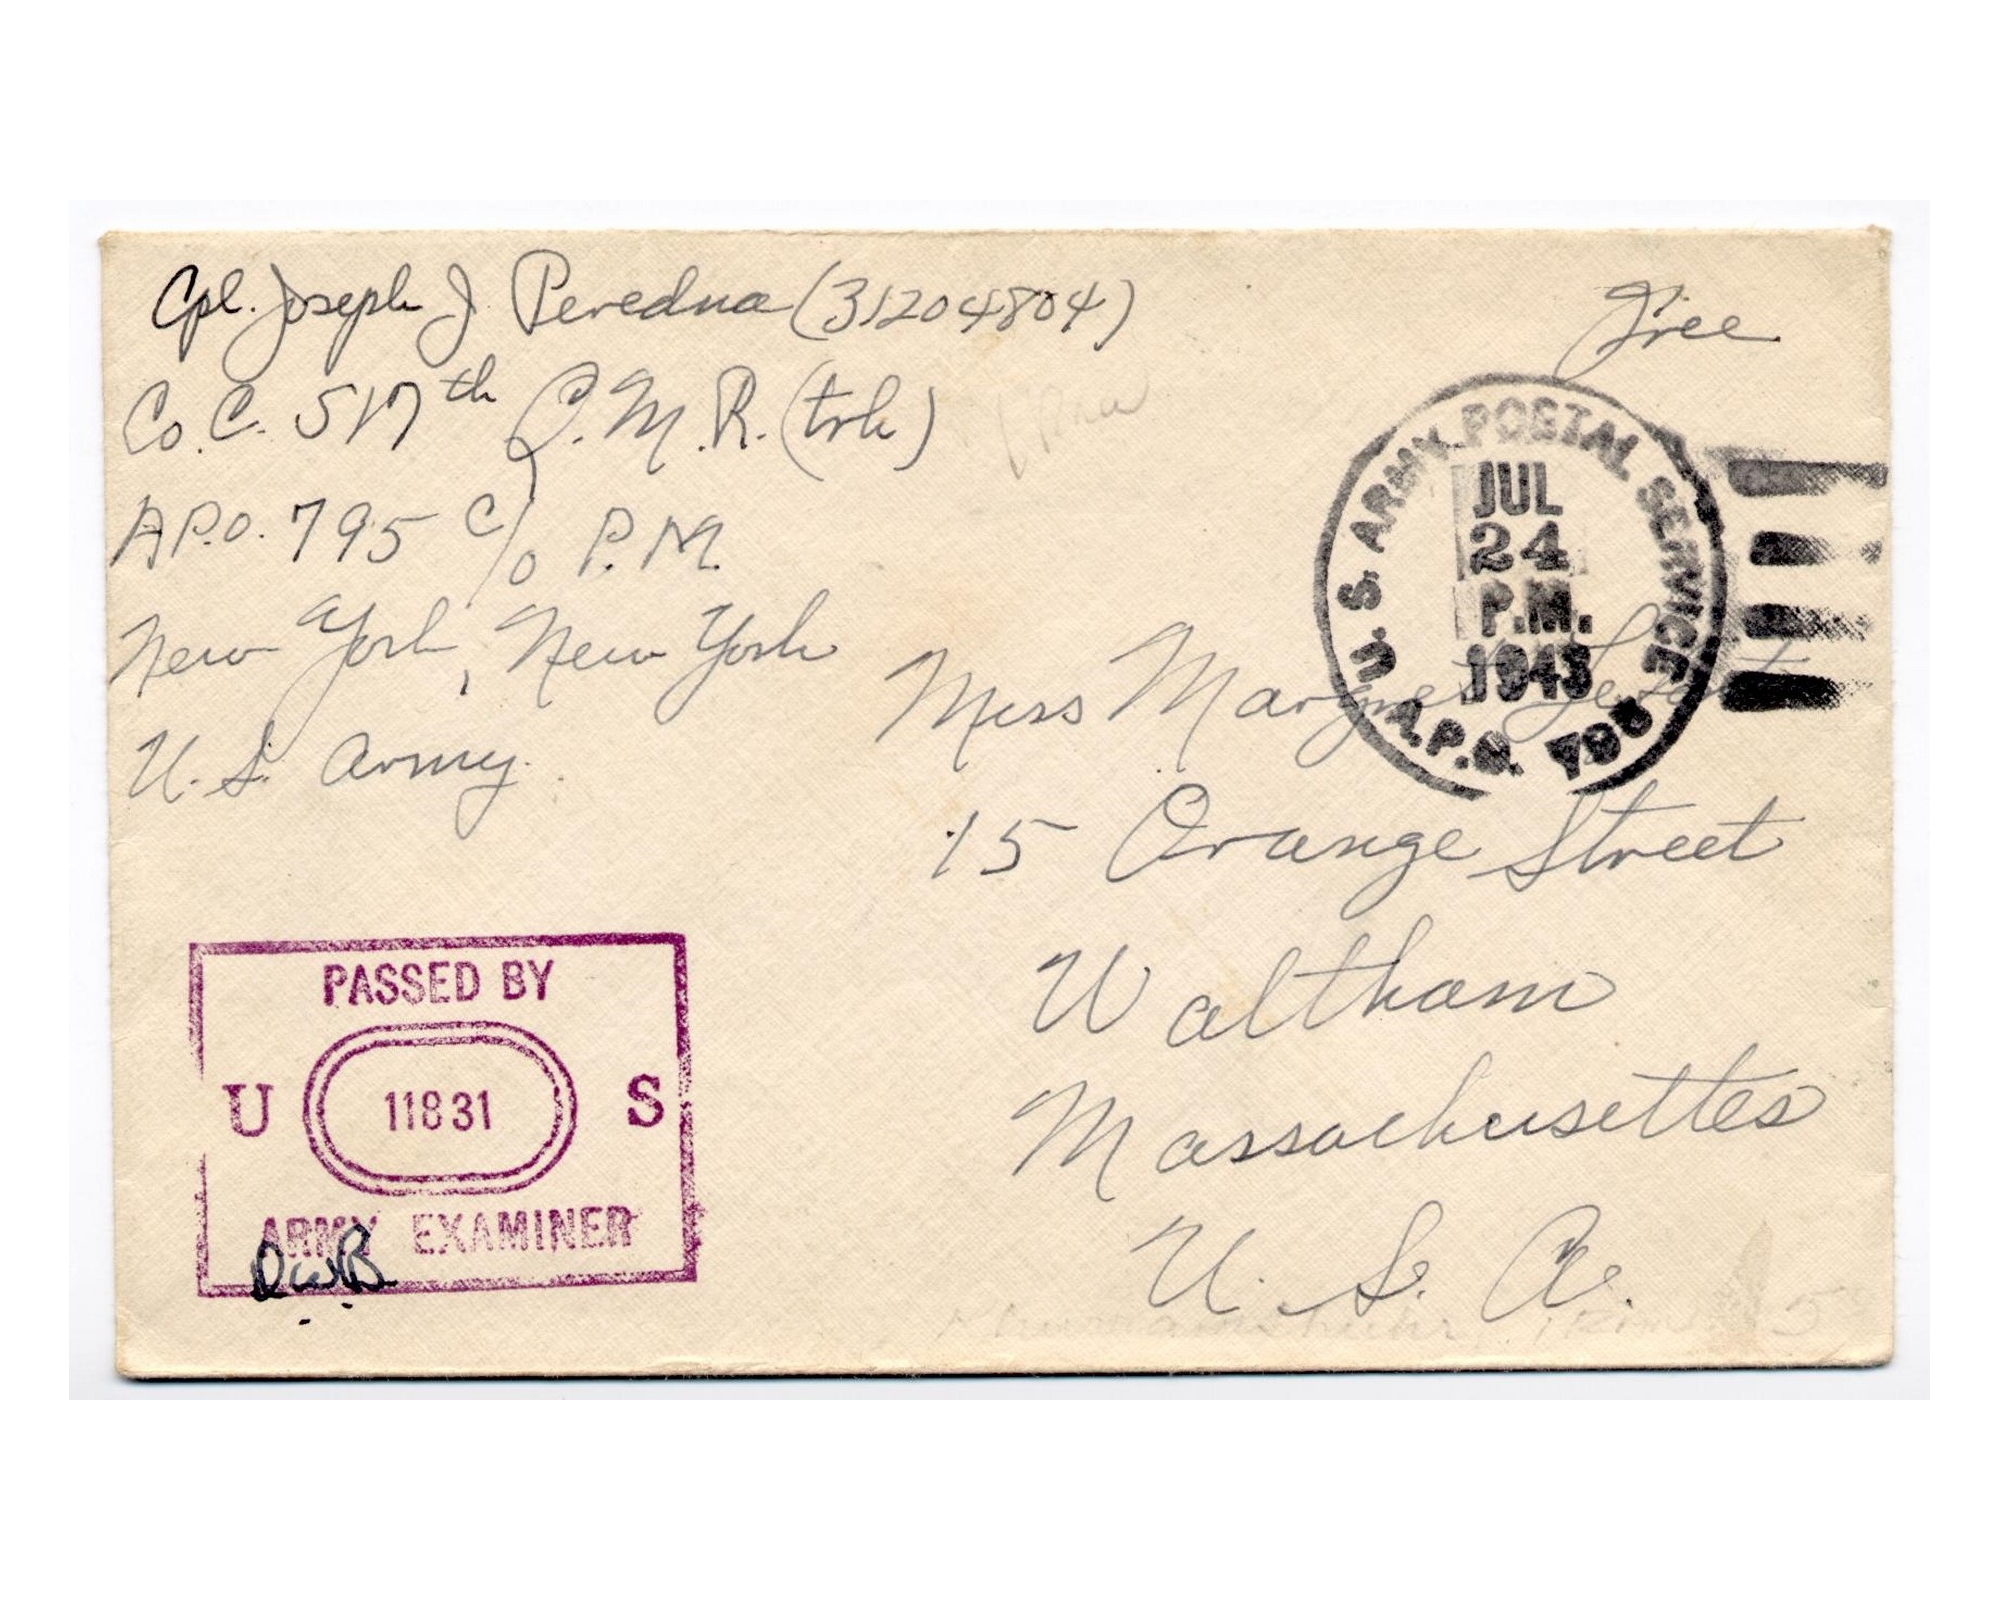 Cpl. Joseph J. Peredna (31204804)
Free
Co. C. 517th Q.M.R. (trk)
A.P.O. 795 c/o P.M.
New York, New York
U.S. Army
U.S. ARMY POSTAL SERVICE
JUL
24
P.M.
1943
A.P.O. 795
Miss Margaret
15 Orange Street
Waltham
Massachusettes
U. S. A.
PASSED BY
U 11831 S
ARMY EXAMINER
DWB